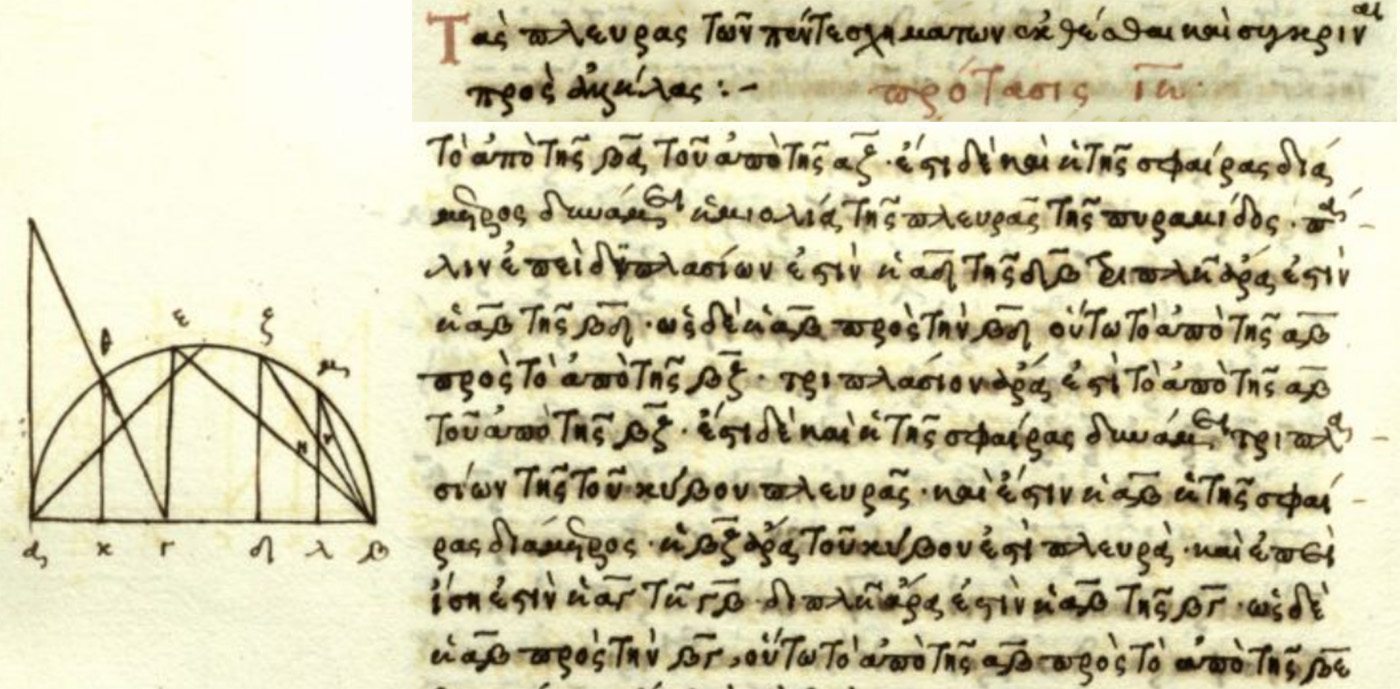 Τὰς πλευρὰς τῶν πέντε σχημάτων ἐκθέσθαι καὶ συγκρῖναι
πρὸς ἀλλήλας :-
πρότασις ιη
τὸ ἀπὸ τῆς βα τοῦ ἀπὸ τῆς αζ · ἔστι δὲ καὶ ἡ τῆς σφαίρας διά
μετρος δυνάμει ἡμιολία τῆς πλευρᾶς τῆς πυραμίδος · πά
λιν ἐπεὶ διπλασίων ἐστὶν ἡ αδ τῆς δβ τριπλῆ ἄρα ἐστὶν
ἡ αβ τῆς βδ · ὡς δὲ ἡ αβ πρὸς τὴν βδ οὕτω τὸ ἀπὸ τῆς αβ
πρὸς τὸ ἀπὸ τῆς βζ · τριπλάσιον ἄρα ἐστὶ τὸ ἀπὸ τῆς αβ
τοῦ ἀπὸ τῆς βζ · ἔστι δὲ καὶ ἡ τῆς σφαίρας δυνάμει τριπλα
σίων τῆς τοῦ κύβου πλευρᾶς · καὶ ἔστιν ἡ αβ ἡ τῆς σφαί
ρας διάμετρος · ἡ βζ ἄρα τοῦ κύβου ἐστὶ πλευρὰ · καὶ ἐπεὶ
ἴση ἐστὶν ἡ αγ τῇ γβ · διπλῆ ἄρα ἐστὶν ἡ αβ τῆς βγ · ὡς δὲ
ἡ αβ πρὸς τὴν βγ, οὕτω τὸ ἀπὸ τῆς αβ πρὸς τὸ ἀπὸ τῆς βε
θ ε ζ μ
η ν
α κ γ δ λ β